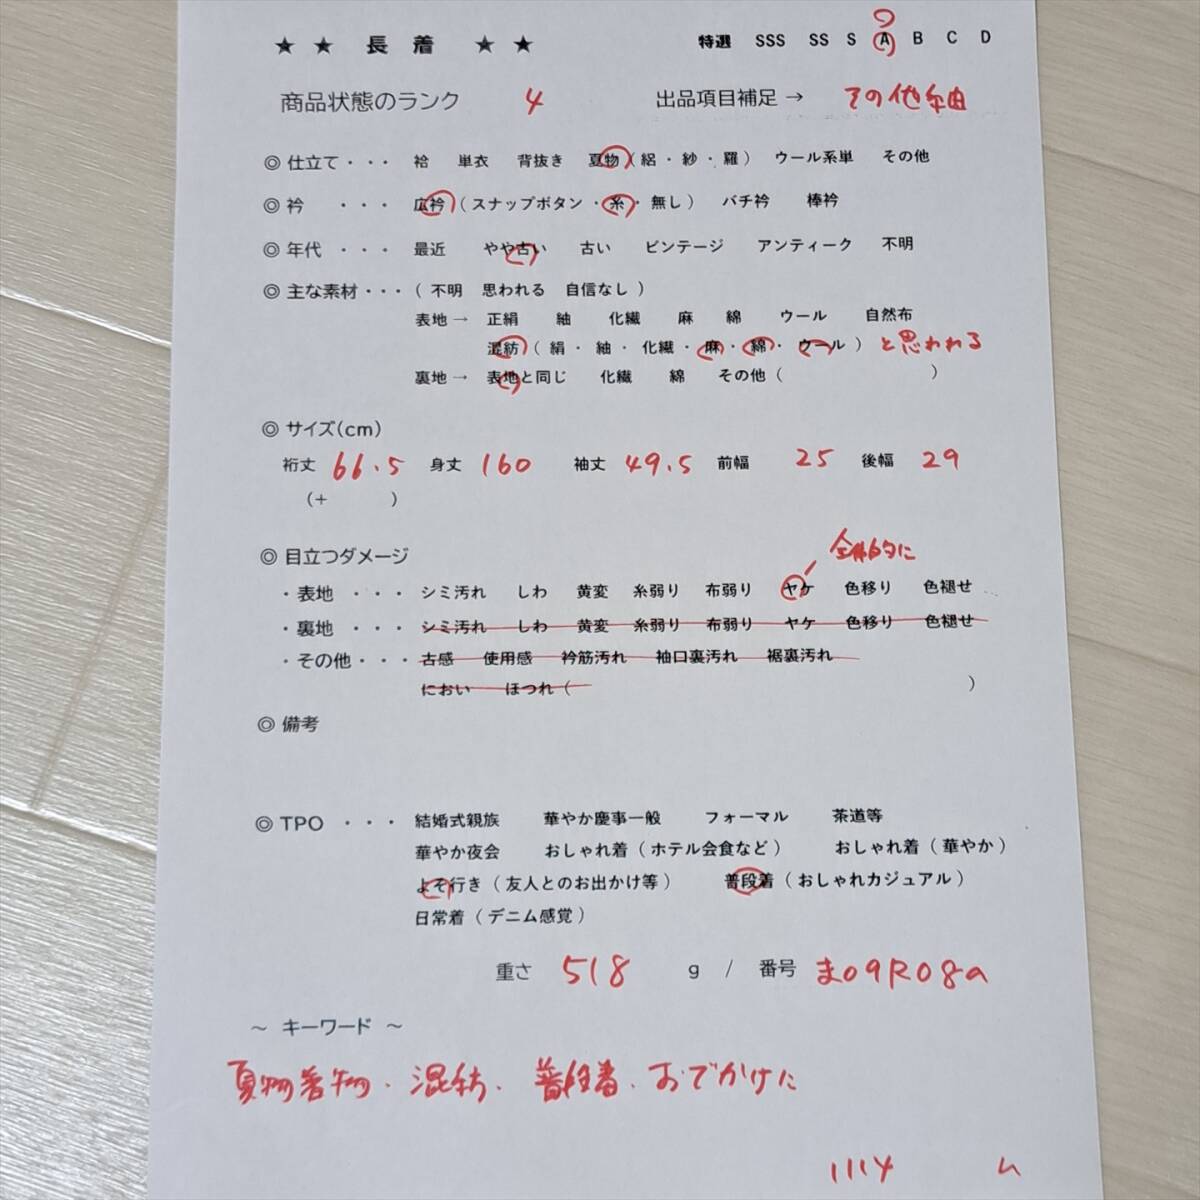 ★ ★ 長 着 ★ ★ 特選 SSS SS S A B C D
商品状態のランク 4 出品項目補足→ その他紬
◎ 仕立て・・・ 袷 単衣 背抜き 夏物(絽・紗・羅) ウール系単 その他
◎ 衿 ・・・ 広衿(スナップボタン・糸・無し) バチ衿 棒衿
◎ 年代 ・・・ 最近 やや古い 古い ビンテージ アンティーク 不明
◎ 主な素材・・・( 不明 思われる 自信なし )
表地→ 正絹 紬 化繊 麻 綿 ウール 自然布
混紡(絹・紬・化繊・麻・綿・ウール) と思われる
裏地→ 表地と同じ 化繊 綿 その他( )
◎ サイズ(cm)
裄丈 66.5 身丈 160 袖丈 49.5 前幅 25 後幅 29
(+ )
◎ 目立つダメージ 全体的に
・表地 ・・・ シミ汚れ しわ 黄変 糸弱り 布弱り ヤケ 色移り 色褪せ
・裏地 ・・・ シミ汚れ しわ 黄変 糸弱り 布弱り ヤケ 色移り 色褪せ
・その他・・・ 古感 使用感 衿筋汚れ 袖口裏汚れ 裾裏汚れ
におい ほつれ( )
◎ 備考
◎ TPO ・・・ 結婚式親族 華やか慶事一般 フォーマル 茶道等
華やか夜会 おしゃれ着(ホテル会食など) おしゃれ着(華やか)
よそ行き(友人とのお出かけ等) 普段着(おしゃれカジュアル)
日常着(デニム感覚)
重さ 518 g / 番号 ま09R08a
～ キーワード ～
夏物着物・混紡・普段着・おでかけに